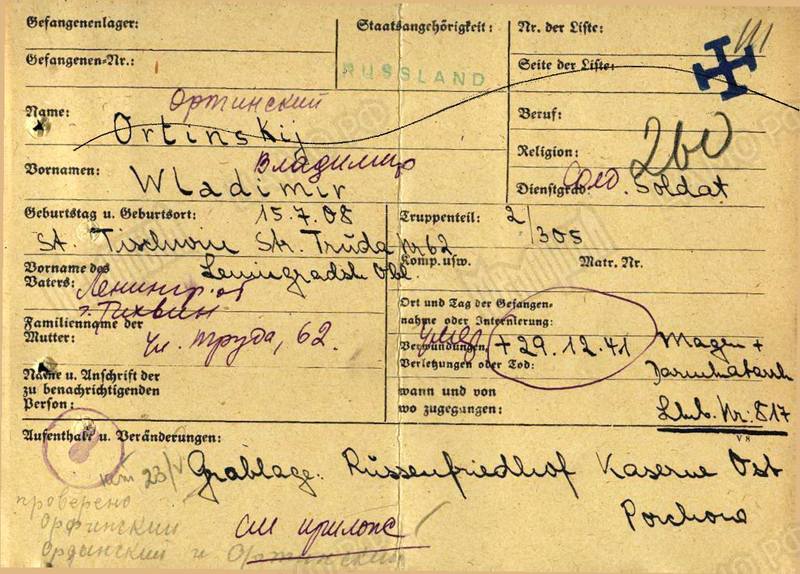 Gefangenenlager:
Staatsangehörigkeit:
Nr. der Liste:
Gefangenen-Nr.:
RUSSLAND
Seite der Liste:
Ортинский
Name: Ortinskij
Beruf:
Владимир
Vornamen: Wladimir
Religion:
260
Dienstgrad: Soldat
Geburtstag u. Geburtsort: 15.7.08
Truppenteil: 2/305
St. Tischwin Str. Truda Nr 62
Leningradsk. Obl.
Komp. usw.
Matr. Nr.
Vorname des
Vaters:
Ленингр. об
г. Тихвин
Ort und Tag der Gefangen-
nahme oder Internierung:
Familienname der
Mutter:
ул. труда, 62.
Verwundungen,
Verletzungen oder Tod:
+ 29.12.41 Magen +
Name u. Anschrift der
zu benachrichtigenden
Person:
wann und von
wo zugegangen:
Nr. 817
Aufenthalt u. Veränderungen:
Grablage: Russenfriedhof Kaserne Ost
Porchow
проверено
Орфинский
Ординский и Ортинский
см прилож